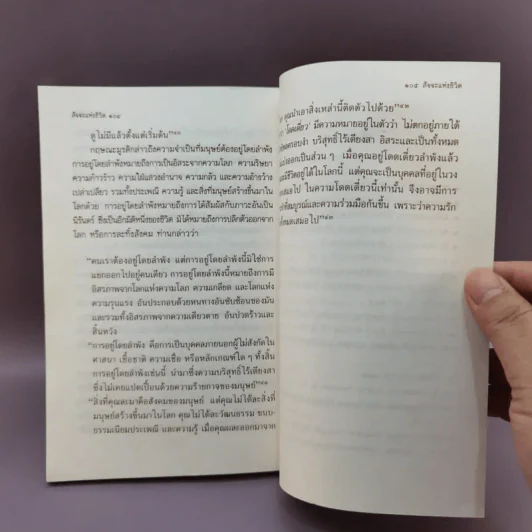 สัจจะแห่งชีวิต ๑๐๔
ดูไม่มีแล้วตั้งแต่เริ่มต้น"
กฤษณะมูรติกล่าวถึงความจำเป็นที่มนุษย์ต้องอยู่โดยลำพัง
การอยู่โดยลำพังหมายถึงการเป็นอิสระจากความโลภ ความริษยา
ความก้าวร้าว ความใฝ่แสวงอำนาจ ความกลัว และความอ้างว้าง
เปล่าเปลี่ยว รวมทั้งประเพณี ความรู้ และสิ่งที่มนุษย์สร้างขึ้นมาใน
โลกด้วย การอยู่โดยลำพังหมายถึงการได้สัมผัสกับภาวะอันเป็น
นิรันดร์ ซึ่งเป็นอีกมิติหนึ่งของชีวิต มิได้หมายถึงการปลีกตัวออกจาก
โลก หรือการละทิ้งสังคม ท่านกล่าวว่า
"คนเราต้องอยู่โดยลำพัง แต่การอยู่โดยลำพังนี้มิใช่การ
แยกออกไปอยู่คนเดียว การอยู่โดยลำพังนี้หมายถึงการมี
อิสรภาพจากโลกแห่งความโลภ ความเกลียด และโลกแห่ง
ความรุนแรง อันประกอบด้วยหนทางอันซับซ้อนของมัน
และรวมทั้งอิสรภาพจากความเดียวดาย อันปวดร้าวและ
สิ้นหวัง
"การอยู่โดยลำพัง คือการเป็นบุคคลภายนอกผู้ไม่สังกัดใน
ศาสนา เชื้อชาติ ความเชื่อ หรือหลักเกณฑ์ใด ๆ ทั้งสิ้น
การอยู่โดยลำพังเช่นนี้ นำมาซึ่งความบริสุทธิ์ไร้เดียงสา
ซึ่งไม่เคยแปดเปื้อนด้วยความร้ายกาจของมนุษย์"
"สิ่งที่คุณละมาคือสังคมของมนุษย์ แต่คุณไม่ได้ละสิ่งที่
มนุษย์สร้างขึ้นมาในโลก คุณไม่ได้ละวัฒนธรรม ขนบ-
ธรรมเนียมประเพณี และความรู้ เมื่อคุณผละออกมาจาก
๑๐๕ สัจจะแห่งชีวิต
คุณนำเอาสิ่งเหล่านี้ติดตัวไปด้วย"
'โดดเดี่ยว' มีความหมายอยู่ในตัวว่า ไม่ตกอยู่ภายใต้
บริสุทธิ์ไร้เดียงสา อิสระและเป็นทั้งหมด
ออกเป็นส่วน ๆ เมื่อคุณอยู่โดดเดี่ยวลำพังแล้ว
ชีวิตอยู่ได้ในโลกนี้ แต่คุณจะเป็นบุคคลที่อยู่ในวง
เสมอไป ในความโดดเดี่ยวนี้เท่านั้น จึงอาจมีการ
สมบูรณ์และความร่วมมือกันขึ้น เพราะว่าความรัก
เสมอไป"